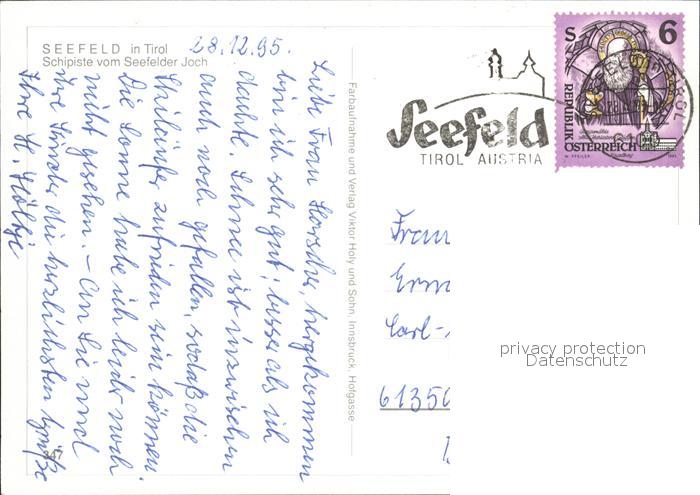 SEEFELD in Tirol
Schipiste vom Seefelder Joch
28.12.95.
Liebe Frau hergekommen
bin ich sehr gut, besser als ich
dachte. Schnee ist inzwischen
auch noch gefallen, sodaß die
Skiläufer zufrieden sein können.
Die Sonne habe ich leider noch
nicht gesehen. – An Sie und
Ihre Kinder die herzlichsten Grüße
Ihre
347
Farbaufnahme und Verlag Viktor Holy und Sohn, Innsbruck, Hofgasse
Seefeld
TIROL AUSTRIA
S 6
REPUBLIK
ÖSTERREICH
TIROL
Frau
Carl-
6135
privacy protection
Datenschutz